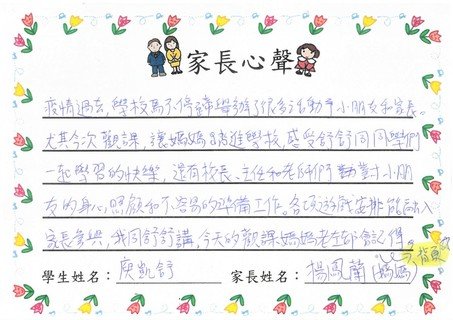 家長心聲
疫情過去,學校馬不停蹄舉辦了很多活動予小朋友和家長。
尤其今次觀課,讓媽媽踏進學校,感受舒舒同同學們
一起學習的快樂,還有校長、主任和老師們對小朋
友的身心照顧和不容易的準備工作。各項遊戲安排能融入
家長參與,我同舒舒講,今天的觀課媽媽老生都記得
學生姓名: 庾凱舒 家長姓名: 楊鳳蘭 (媽媽)
背頁